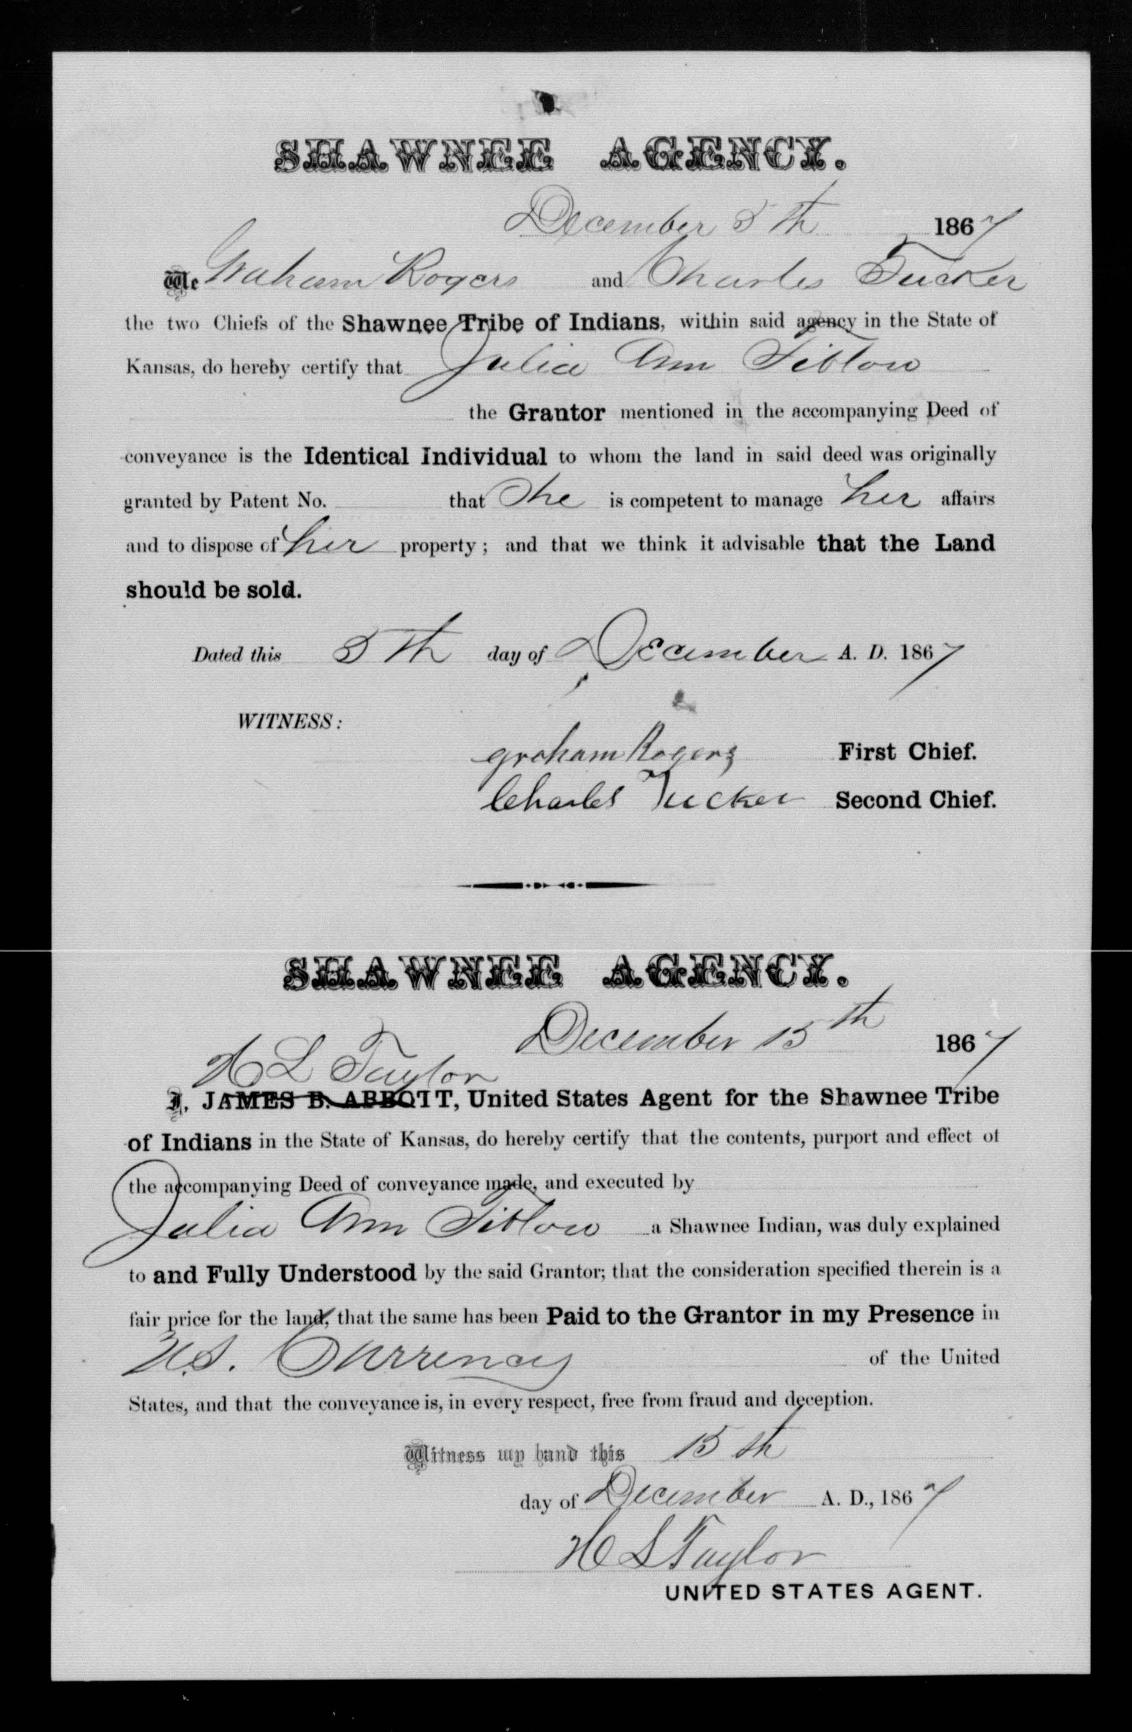 SHAWNEE AGENCY.
December 5th 1867
We Graham Rogers and Charles Tucker
the two Chiefs of the Shawnee Tribe of Indians, within said agency in the State of
Kansas, do hereby certify that Julia Ann Tiblow
the Grantor mentioned in the accompanying Deed of
conveyance is the Identical Individual to whom the land in said deed was originally
granted by Patent No. that She is competent to manage her affairs
and to dispose of her property; and that we think it advisable that the Land
should be sold.
Dated this 5th day of December A. D. 1867
WITNESS:
graham Rogers First Chief.
Charles Tucker Second Chief.
SHAWNEE AGENCY.
December 15th 1867
H L Taylor
I, JAMES B. ABBOTT, United States Agent for the Shawnee Tribe
of Indians in the State of Kansas, do hereby certify that the contents, purport and effect of
the accompanying Deed of conveyance made, and executed by
Julia Ann Tiblow a Shawnee Indian, was duly explained
to and Fully Understood by the said Grantor; that the consideration specified therein is a
fair price for the land, that the same has been Paid to the Grantor in my Presence in
U.S. Currency of the United
States, and that the conveyance is, in every respect, free from fraud and deception.
Witness my hand this 15th
day of December A. D., 1867
H L Taylor
UNITED STATES AGENT.